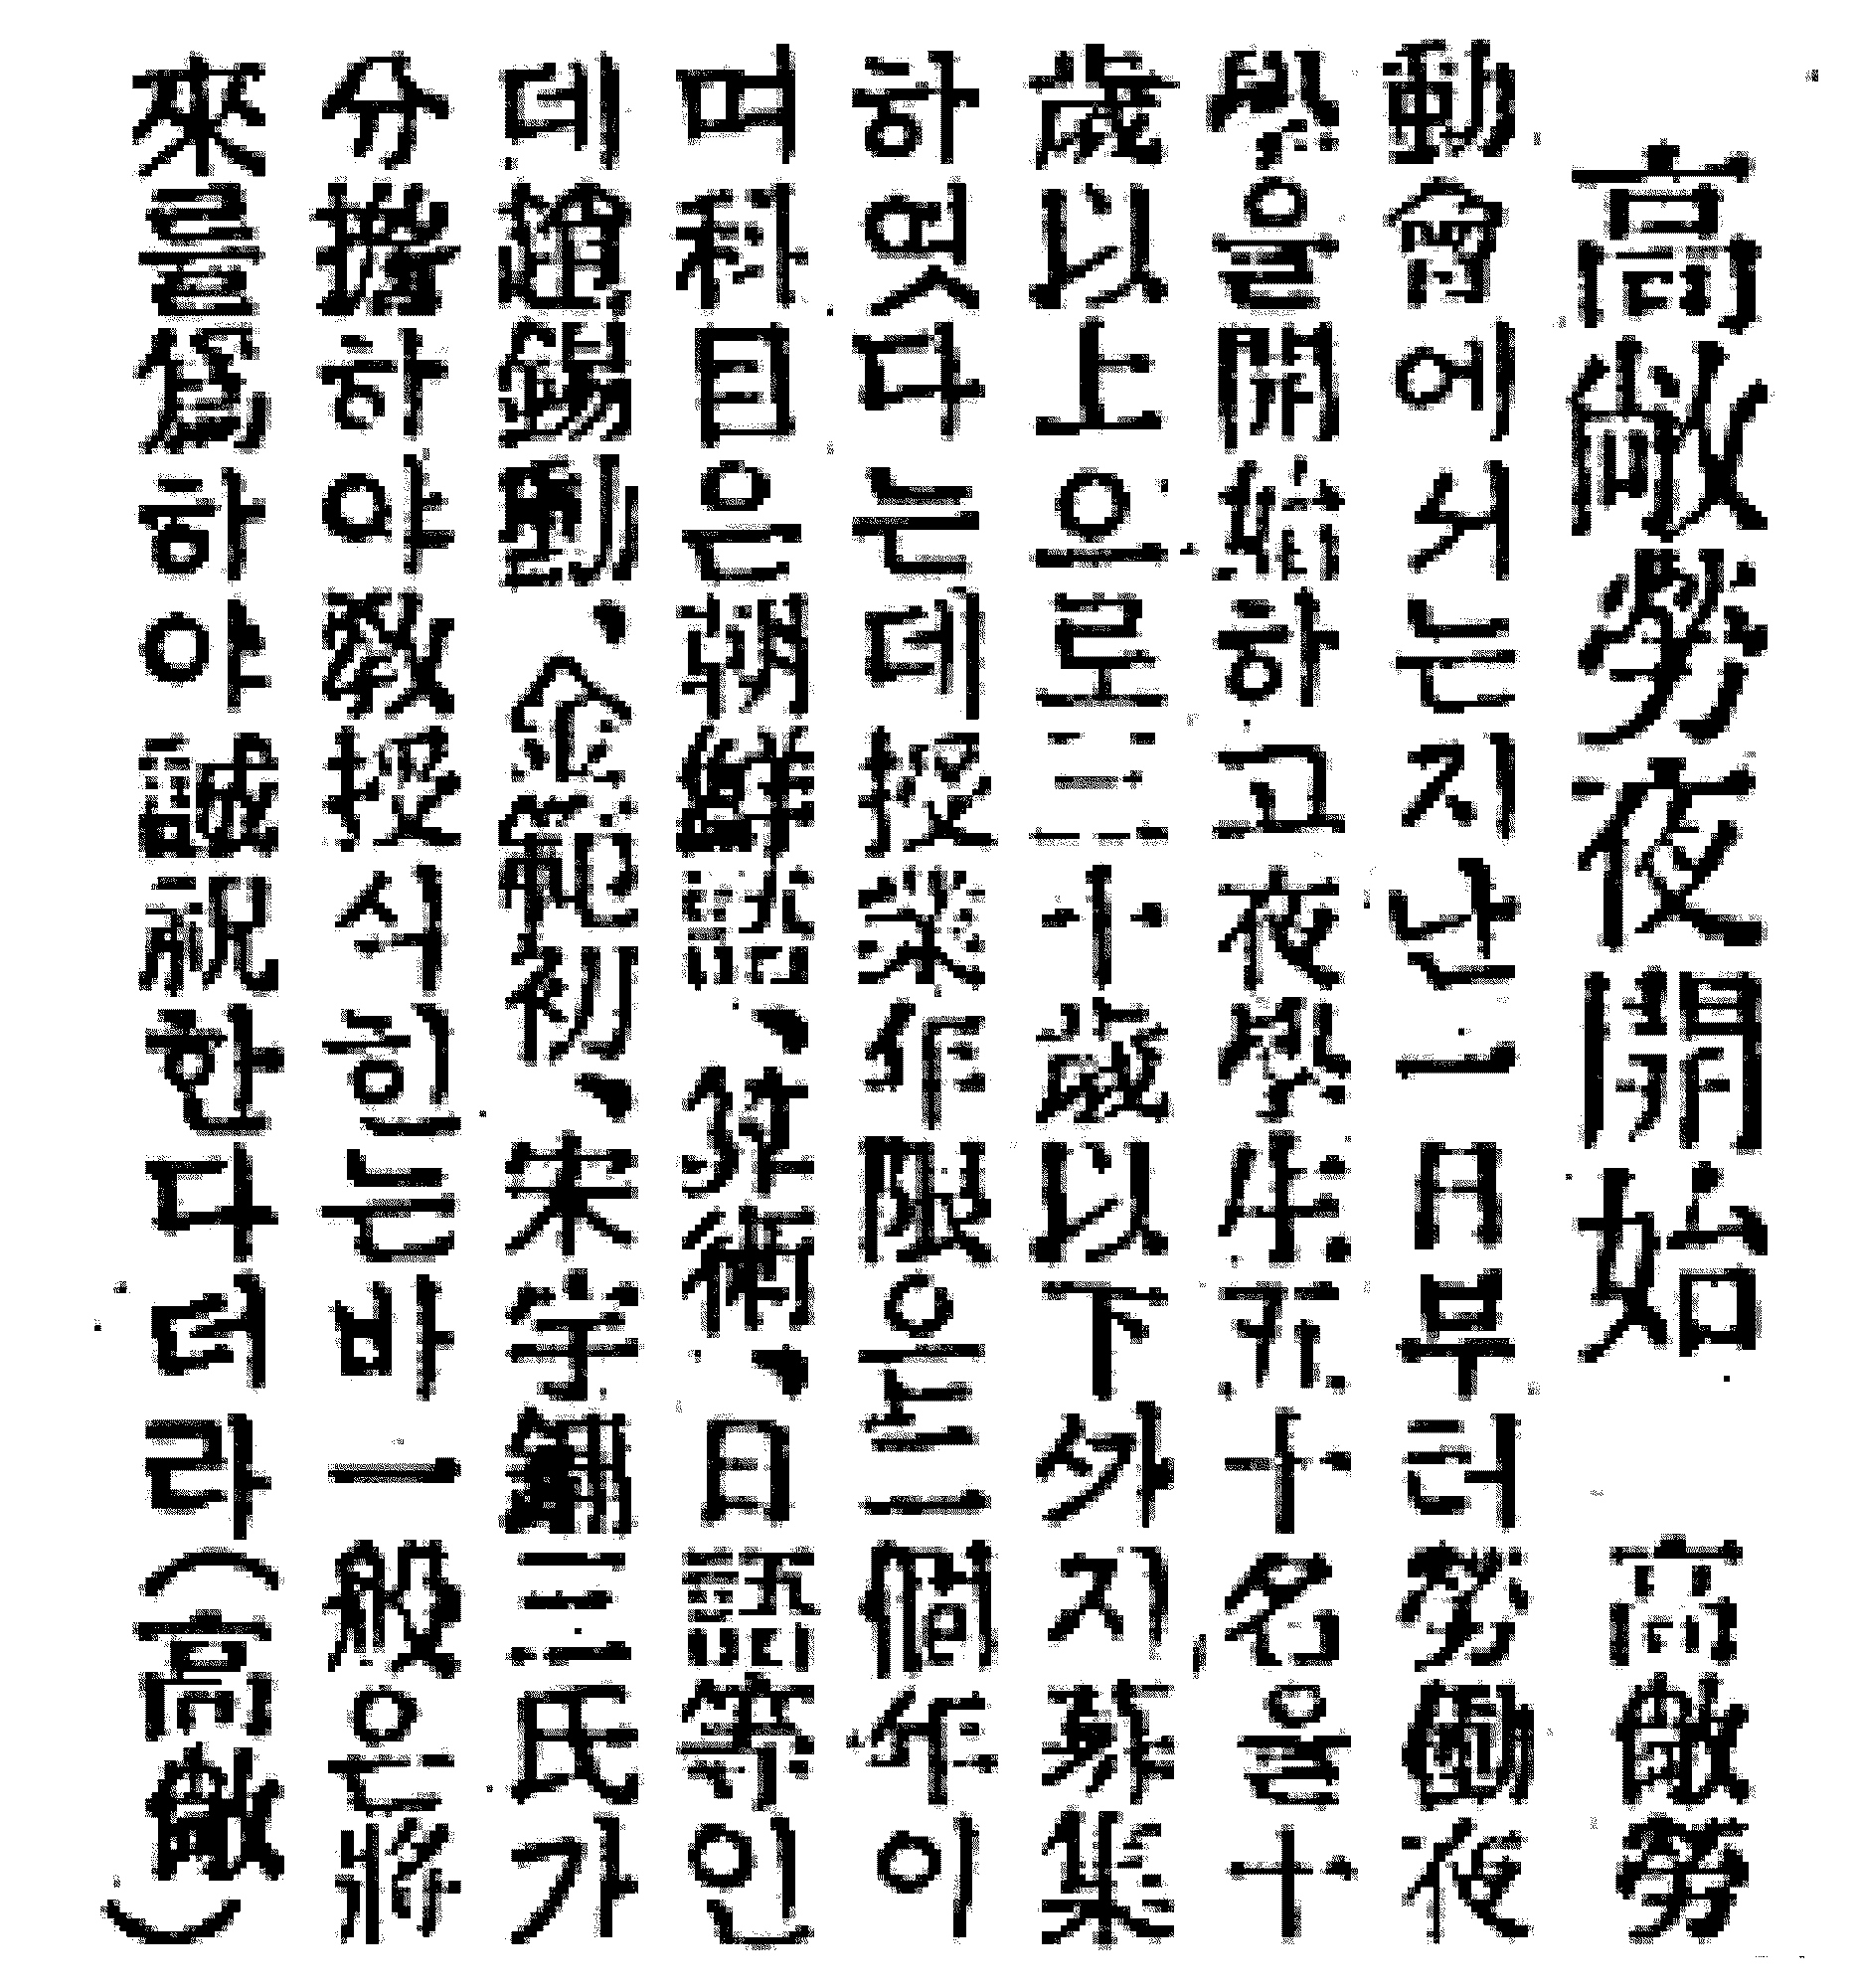 高敞勞夜開始
高敞勞
動會에서는지난一月부터勞働夜
學을開始하고夜學生五十名을十
歲以上으로三十歲以下外지募集
하엿다는데授業年限은二個年이
며科目은朝鮮語、算術、日語等인
데趙錫劉、金杞初、宋宇綱三氏가
分擔하야敎授식힌는바一般은將
來를爲하야誠祝한다더라(高敞)